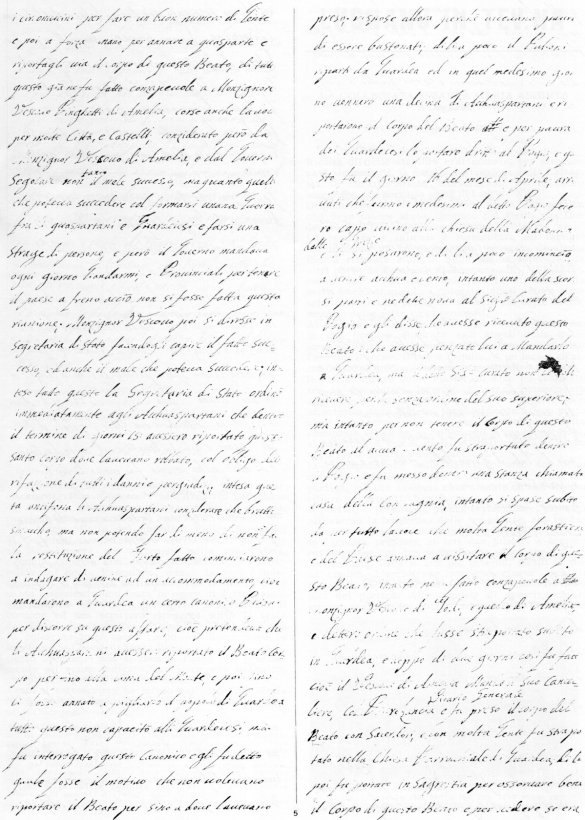 i circonvicini per fare un buon numero di Gente
e poi a forza mano per annare a guasparte e
riportagli via il Corpo di questo Beato, di tutto
questo già ne fu fatto consapevole a Monzignor
Vescovo Pinghetti di Amelia, corse anche la voce
per molte Città, e Castelli, considerato però da
Monzignor Vescovo di Amelia, e dal Governo
Segolare non tanto il male sucesso, ma quanto quello
che poteva succedere col formarsi una Guerra
fra li guaspartani e Guardeasi e farsi una
strage di persone, e però il Governo mandava
ogni giorno Giandarmi, e Provinciali per tenere
il paese a freno acciò non si fosse fatta questa
riunione, Monzignor Vescovo poi si diresse in
segretaria di stato facendogli capire il fatto suc-
cesso, ed anche il male che poteva succedere, in-
teso tutto questo la Segretaria di Stato ordinò
immediatamente agli Achuaspartani che dentro
il termine di giorni 15 avessero riportato questo
santo corpo dove l'avevano rubato, col obligo del
rifazione di tutti i danni e pregiudizi, intesa que
ta Achuaspartani considerate che brutto
smacho, ma non potendo far di meno di non fa
la restituzione del Furto fatto cominciarono
a indagare di venire ad un accommodamento, cioè
mandarono a Guardea un certo Canonico
per discorre su questo affare, cioè pretendeva che
li Achuaspartani avessero riportato il Beato Cor-
po per sino alla cima del Monte e poi sino
li fosse annato a pigliarlo il popolo di Guardea
tutto questo non capacitò alli Guardeasi ma
fu interrogato questo Canonico e gli fu detto
quale fosse il motivo che non volevano
riportare il Beato per sino a dove l'avevano
preso, rispose allora perchè avevano paura
di essere bastonati, di lì a poco il
ripartì da Guardea ed in quel medesimo gior
no vennero una decina di Achuaspartani e ri
portarono il Corpo del Beato e per paura
dei Guardeasi lo portaro diritto al Pogio, e que
sto fu il giorno 16 del mese di Aprile, arri
vati che furono i medesimi al detto Pogio fece
ro capo vicino alla chiesa della Madonna
delle Grazie e lì si posarono, e di lì a poco incominciò
a venire achua e vento, intanto uno della suoi
si partì e ne dette nova al Sigr Curato del
Pogio e gli disse, che avesse ricevuto questo
Beato e che avesse pensato lui a Mandarlo
a Guardea, ma il detto Sigr Curato non
ricevere senza ordine del suo superiore,
ma intanto per non tenere il Corpo di questo
Beato al acua e vento, fu straportato dentro
a Pogio e fu messo dentro una stanza chiamata
casa della Compagnia, intanto si spase subito
da per tutto la voce che molta Gente forastiera
e del Paese annava a visitare il Corpo di que-
sto Beato, ma fu fatto consapevole a
Monzignor Vescovo di Todi, e quello di Amelia,
e determinorno che fusse straportato subito
in Guardea, e doppo di due giorni così fu fatto
cioè il Vescovo di Amelia Manzò il suo Cance-
liere, Vicario Generale e fu preso il Corpo del
Beato con Sacerdoti, e con molta Gente fu strapor
tato nella Chiesa Parrocchiale di Guardea, di lì
poi fu portato in Sagrestia per osservare bene
il Corpo di questo Beato e per vedere se era
5